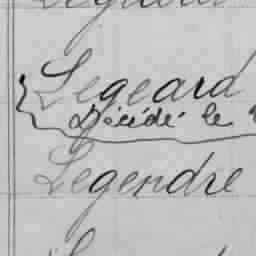 Legeard
Décédé le
Legendre